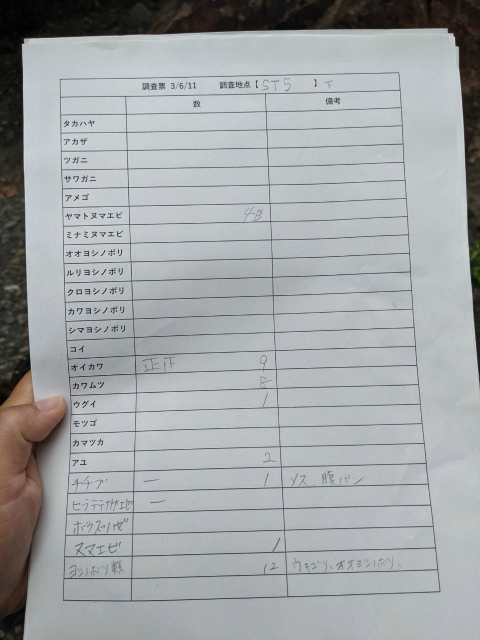 調査票 3/6/11 調査地点【 ST5 】 下
数 備考
タカハヤ
アカザ
ツガニ
サワガニ
アメゴ
ヤマトヌマエビ 48
ミナミヌマエビ
オオヨシノボリ
ルリヨシノボリ
クロヨシノボリ
カワヨシノボリ
シマヨシノボリ
コイ
オイカワ 正正 9
カワムツ 8
ウグイ 1
モツゴ
カマツカ
アユ 2
チチブ 一 1 メス、腹パン
ヒラテテナガエビ 一
ボウズハゼ
ヌマエビ 1
ヨシノボリ類 12 ウキゴリ、オオヨシノボリ、